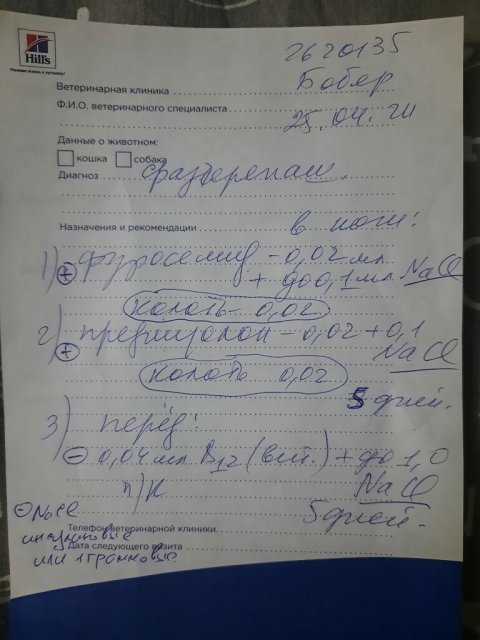 Hill's
2620135
Ветеринарная клиника Бобёр
Ф.И.О. ветеринарного специалиста
25.04.24
Данные о животном:
кошка собака
Диагноз
Назначения и рекомендации в ноги:
1) + фуросемид - 0,02 мл
+ до 0,1 мл NaCl
колоть - 0,02
2) + преднизолон - 0,02 + 0,1
NaCl
колоть 0,02
5 дней.
3) перед:
- 0,04 мл B12 (вит.) + до 1,0
п/к NaCl
5 дней.
NaCl
Телефон ветеринарной клиники
инсулиновые
Дата следующего визита
или 1 граммовые